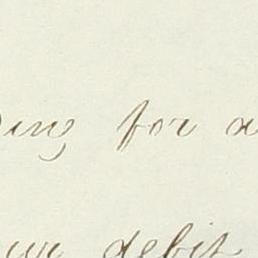 ing for a
ur debit